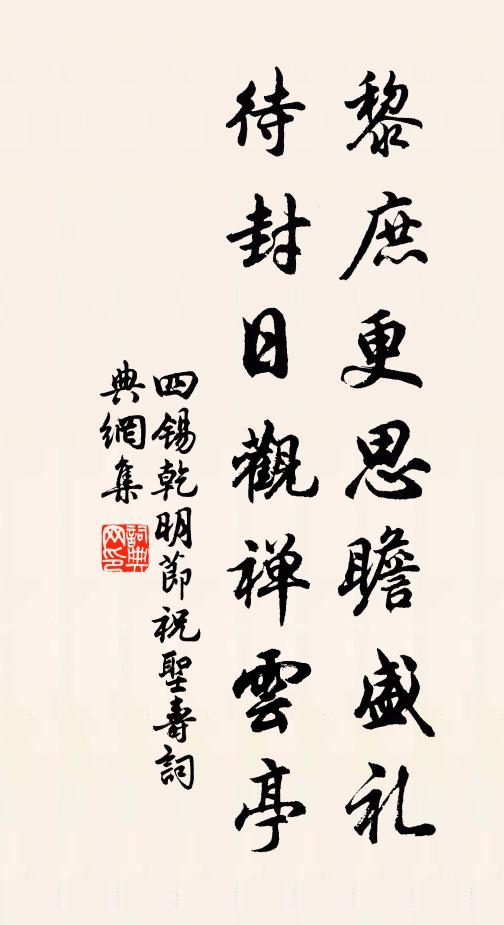 黎庶更思瞻盛礼
待封日觀禅雲亭
四锡乾明節祝聖壽詞
典網集
詞典网印